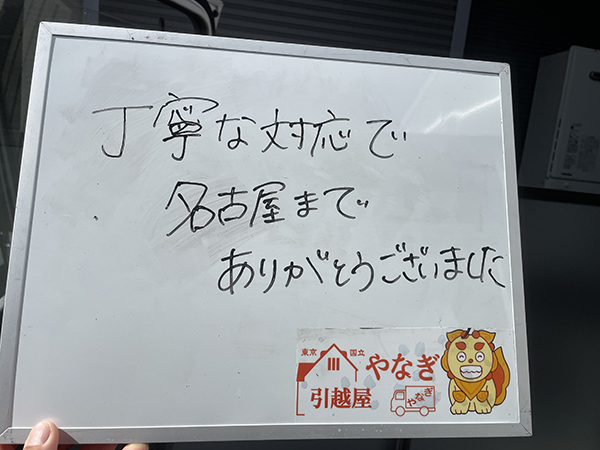 丁寧な対応で
名古屋まで
ありがとうございました
東京 国立 やなぎ
引越屋 やなぎ